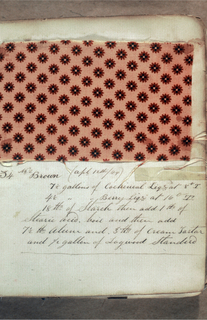 54 Brown
7½ gallons of Cochineal Liqr at 8° T
4½ " " Berry Liqr at 10° T
18 lb of Starch then add 1 lb of
Stearic Acid, boil and then add
7½ lb Alum and 3 lb of Cream Tartar
and ½ gallon of Logwood Standard